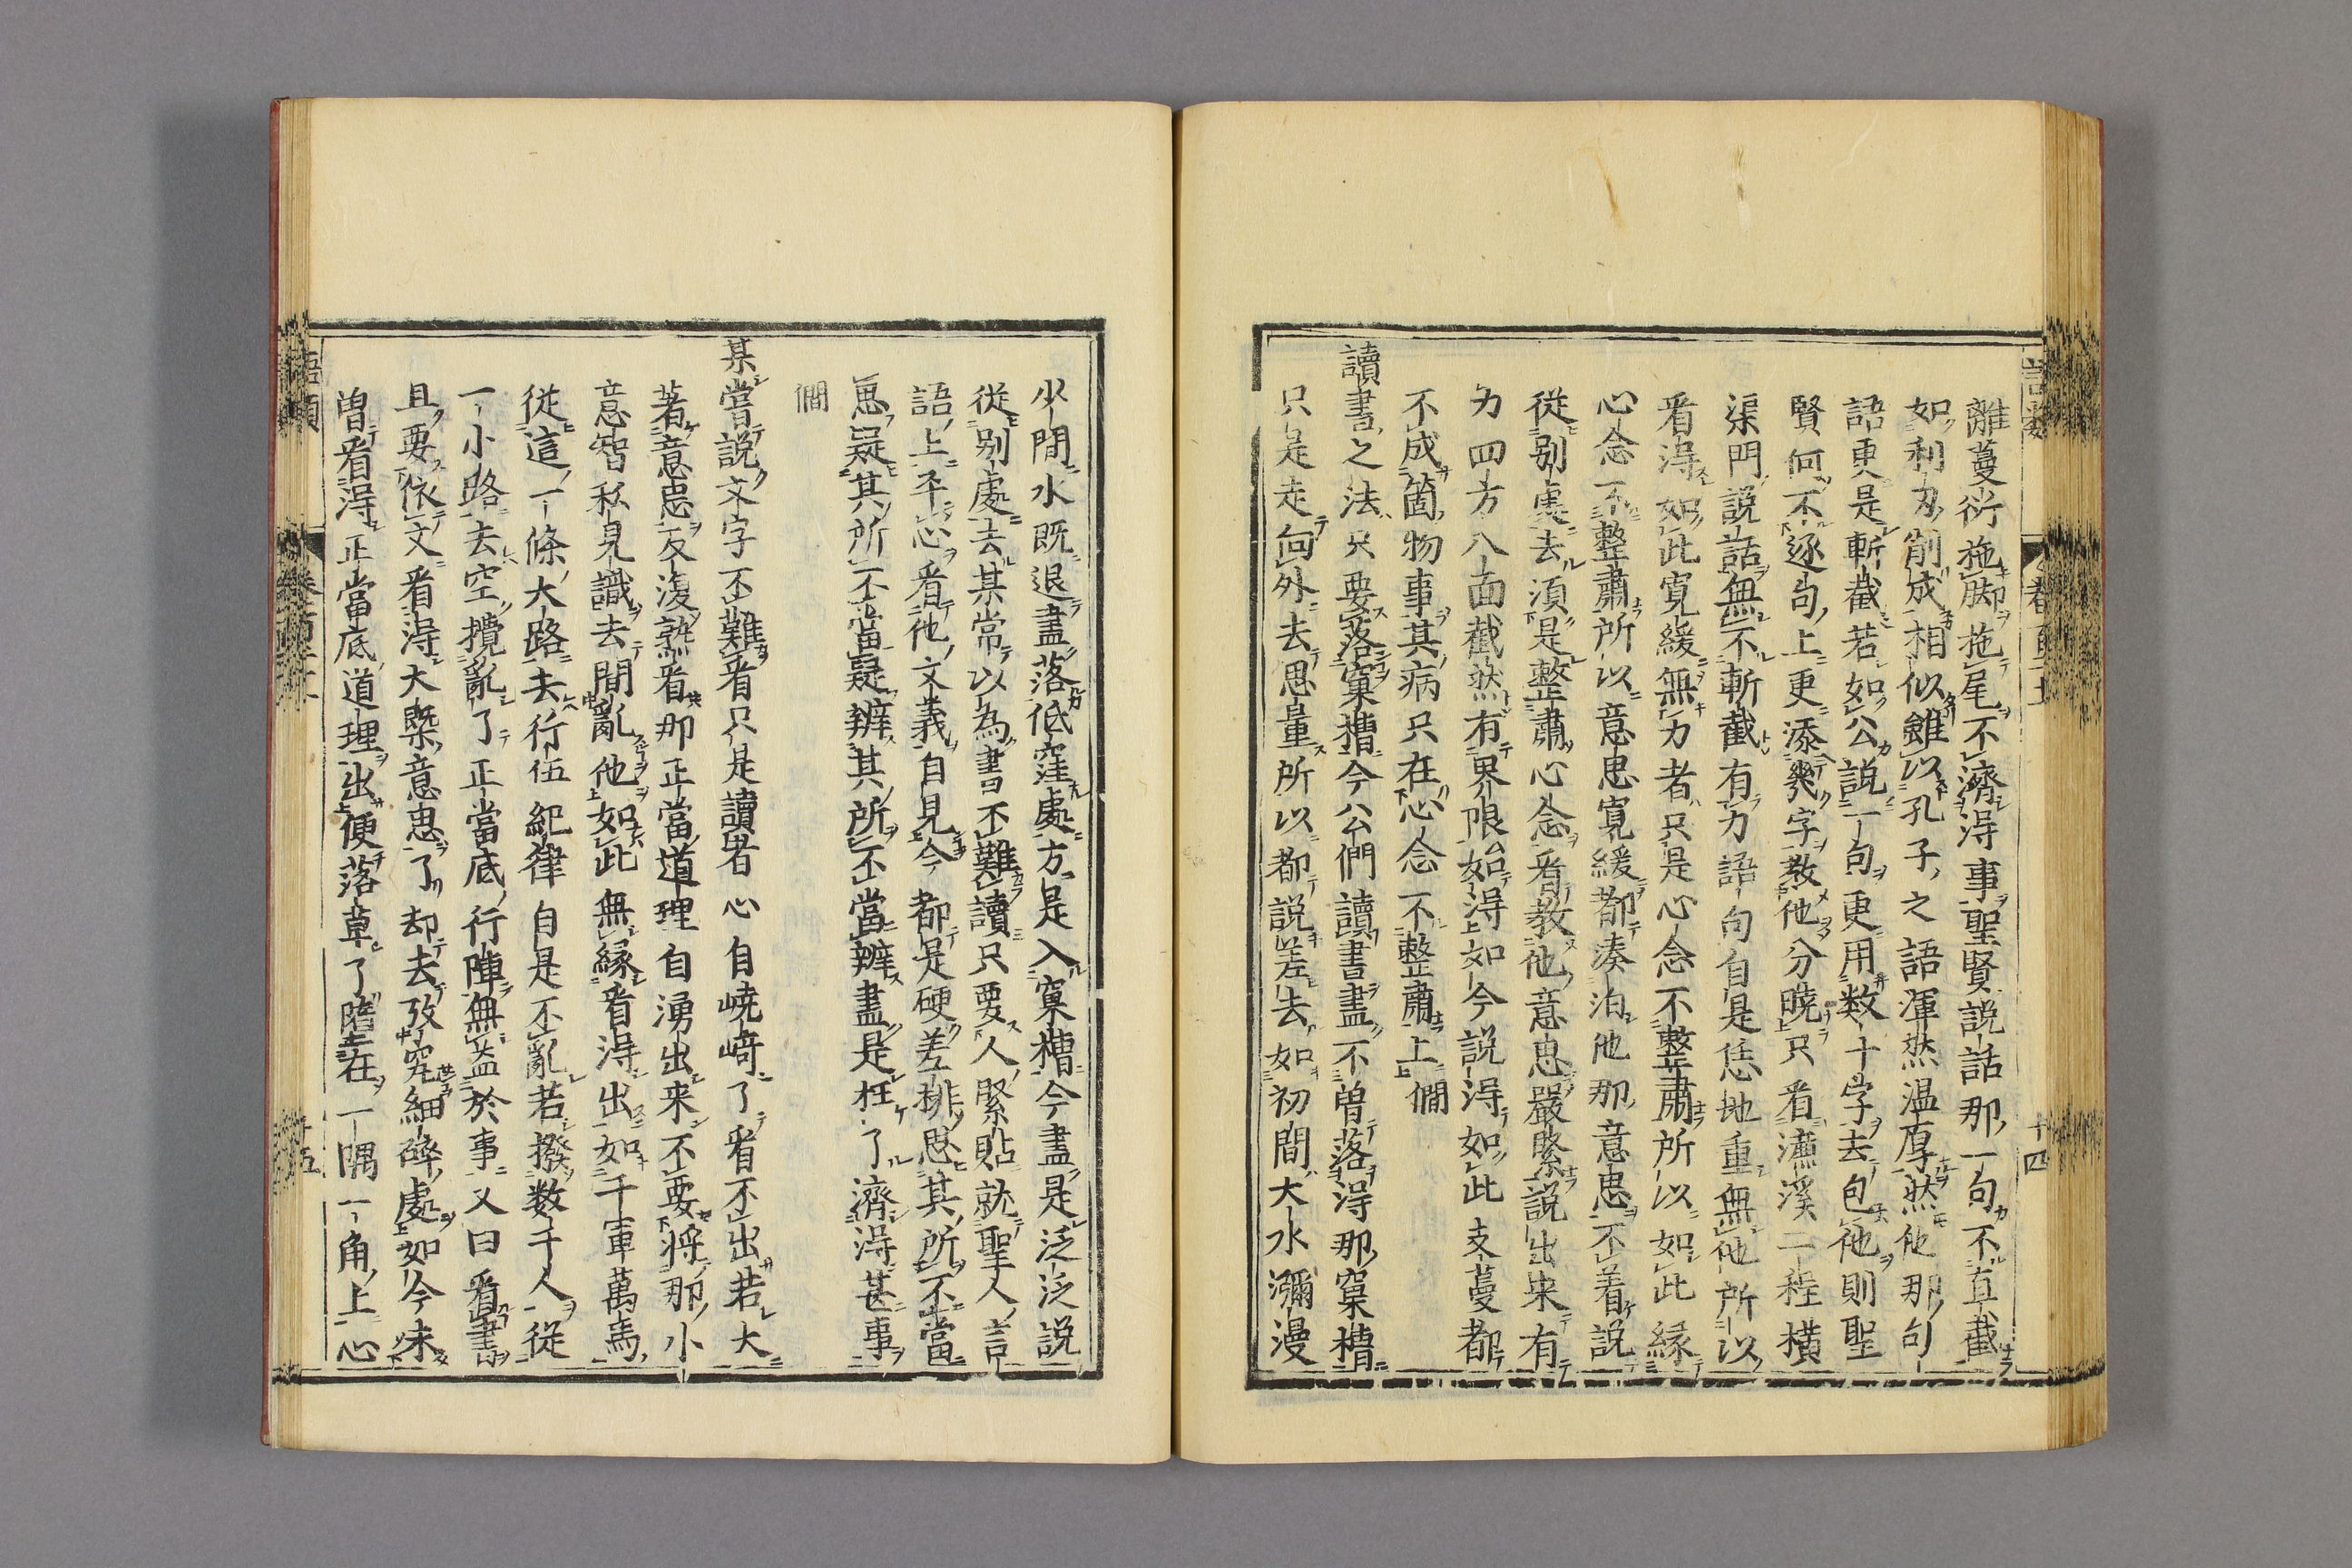 離蔓衍拖脚拖尾不濟得事聖賢說話那一句不直截
如利刃削成相似雖以孔子之語渾然温厚然他那句
語更是斬截若如公說一句更用数十字去包他則聖
賢何不逐句上更添幾字教他分曉只看濂溪二程橫
渠門說話無不斬截有力語句自是恁地重無他所以
看得如此寬緩無力者只是心念不整肅所以如此緣
心念不整肅所以意思寬緩都湊泊他那意思不着說
從别處去須是整肅心念看教他意思嚴緊說出來有
力四方八面截然有界限始得如今說得如此支蔓都
不成箇物事其病只在心念不整肅上僩
讀書之法只要落窠槽今公們讀書盡不曾落得那窠槽
只是走向外去思量所以都說差去如初間大水瀰漫
少間水既退盡落低窪處方是入窠槽今盡是泛泛說
從别處去某常以為書不難讀只要人緊貼就聖人言
語上平心看他文義自見今都是硬差排思其所不當
思疑其所不當疑辨其所不當辨盡是枉了濟得甚事
僩
某嘗說文字不難看只是讀者心自嶢﨑了看不出若大
著意思反復熟看那正當道理自湧出来不要将那小
意智私見識去間亂他如此無緣看得出如千軍萬馬
從這一條大路去行伍紀律自是不亂若撥数千人從
一小路去空攪亂了正當底行陣無益於事又曰看書
且要依文看得大槩意思了却去攷究細碎處如今未
曽看得正當底道理出便落草了墮在一隅一角上心
語類
卷百二十一
十四
語類
十五